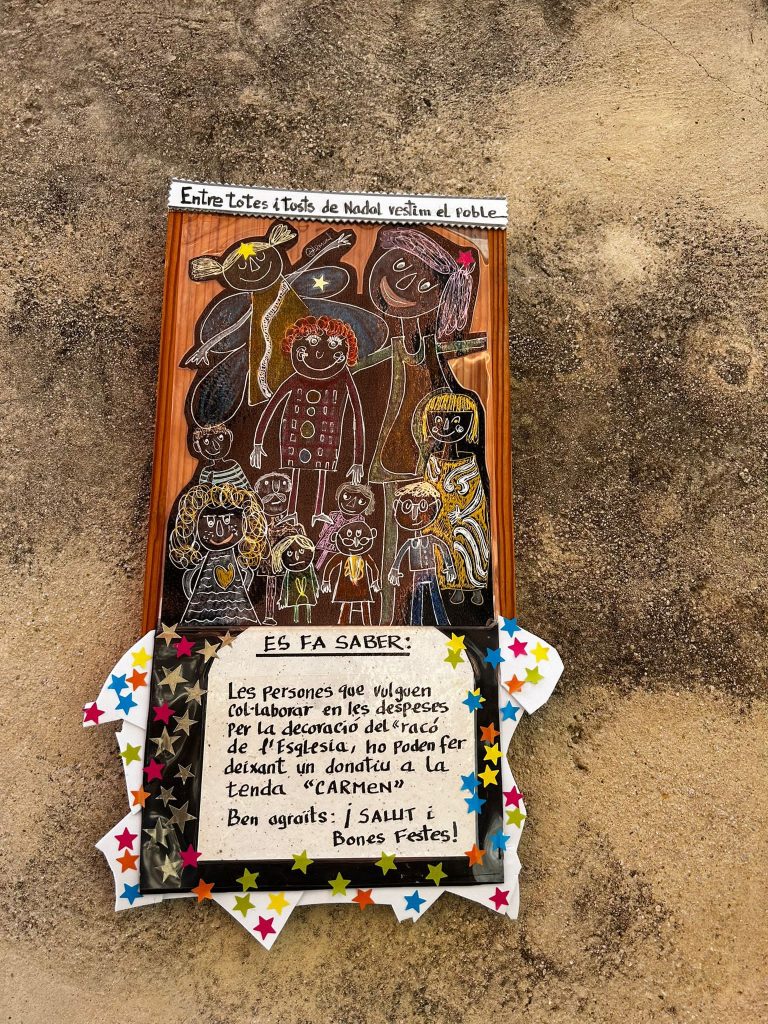 Entre totes i tosts de Nadal vestim el poble
ES FA SABER:
Les persones que vulguen
col·laborar en les despeses
per la decoració del "racó
de l'Església, ho poden fer
deixant un donatiu a la
tenda "CARMEN"
Ben agraïts: ¡SALUT i
Bones Festes!